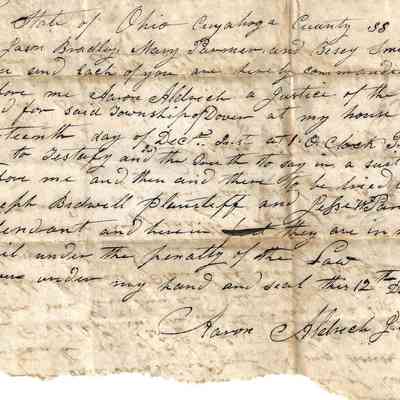 State of Ohio Cuyahoga County SS
Jason Bradley, Mary Parmer, and Betsy
and each of you are hereby commanded
me Aaron Aldrich a Justice of the
for said Township of Dover at my house
day of Decr. Inst. at 1. O Clock
to Testify and the Truth to say in a suit
me and then and there to be
Bidwell Plaintiff and Jesse W. Par
and herein they are in
under the penalty of the Law
under my hand and seal this 12th
Aaron Aldrich